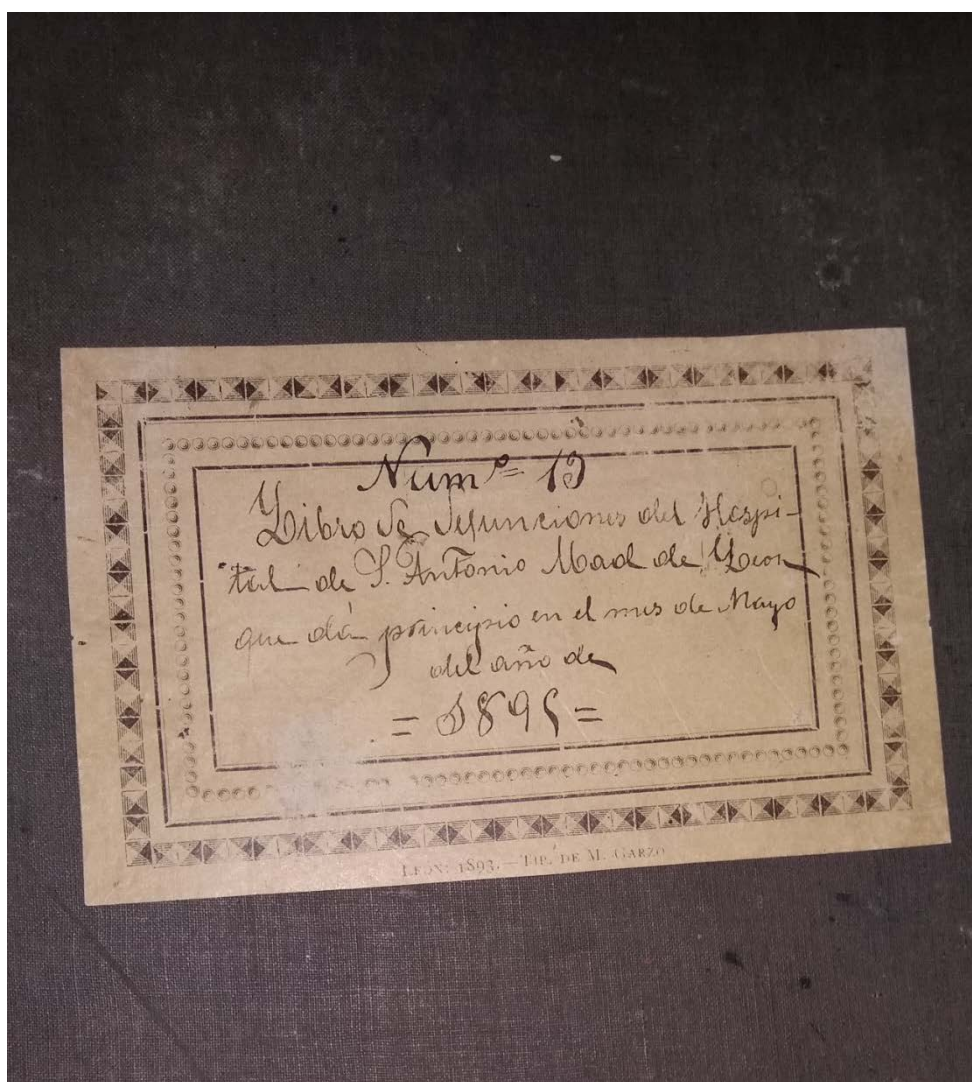 Numº= 13
Libro de defunciones del Hospi-
tal de S. Antonio Abad de Leon
que dá principio en el mes de Mayo
del año de
= 1895 =
LEON: 1893.—TIP. DE M. GARZO